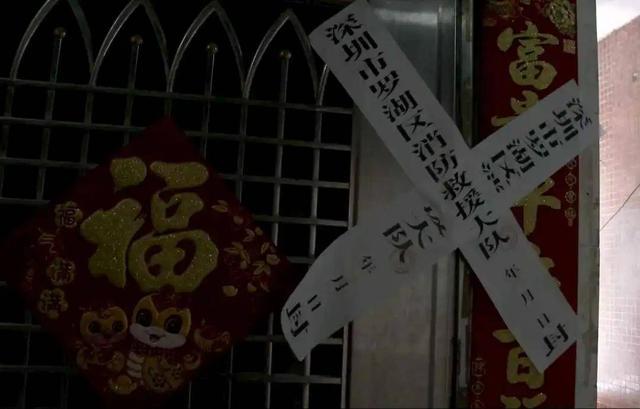 福
深圳市罗湖区消防救援大队 年 月 日封
深圳市罗湖区消
大队 年 月 日封
富